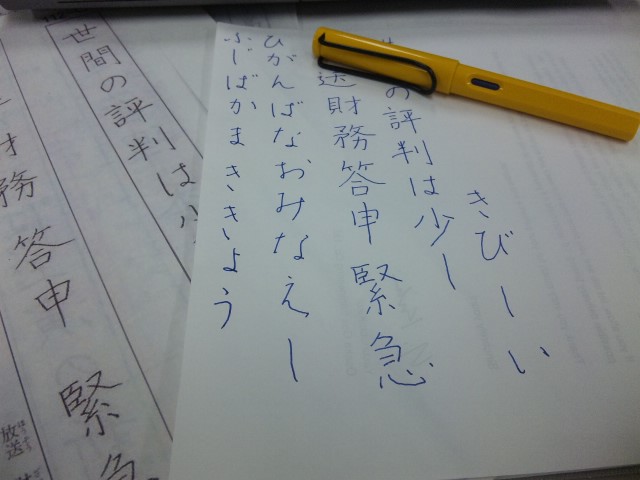 きびしい
の評判は少し
送財務答申 緊急
ひがんばなおみなえし
ふじばかま ききょう
世間の評判は少
財務答申 緊急
放送